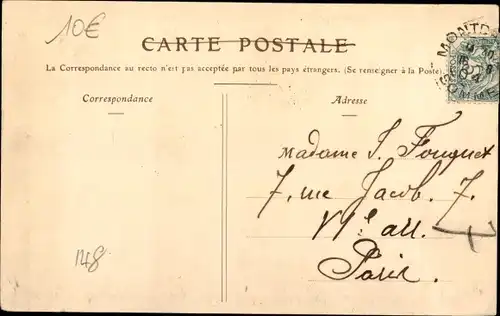 10€
CARTE POSTALE
La Correspondance au recto n'est pas acceptée par tous les pays étrangers. (Se renseigner à la Poste).
Correspondance
Adresse
Madame J. Fouquet
7, rue Jacob. 7.
VIe arr.
Paris.
148
MONTD
OMME